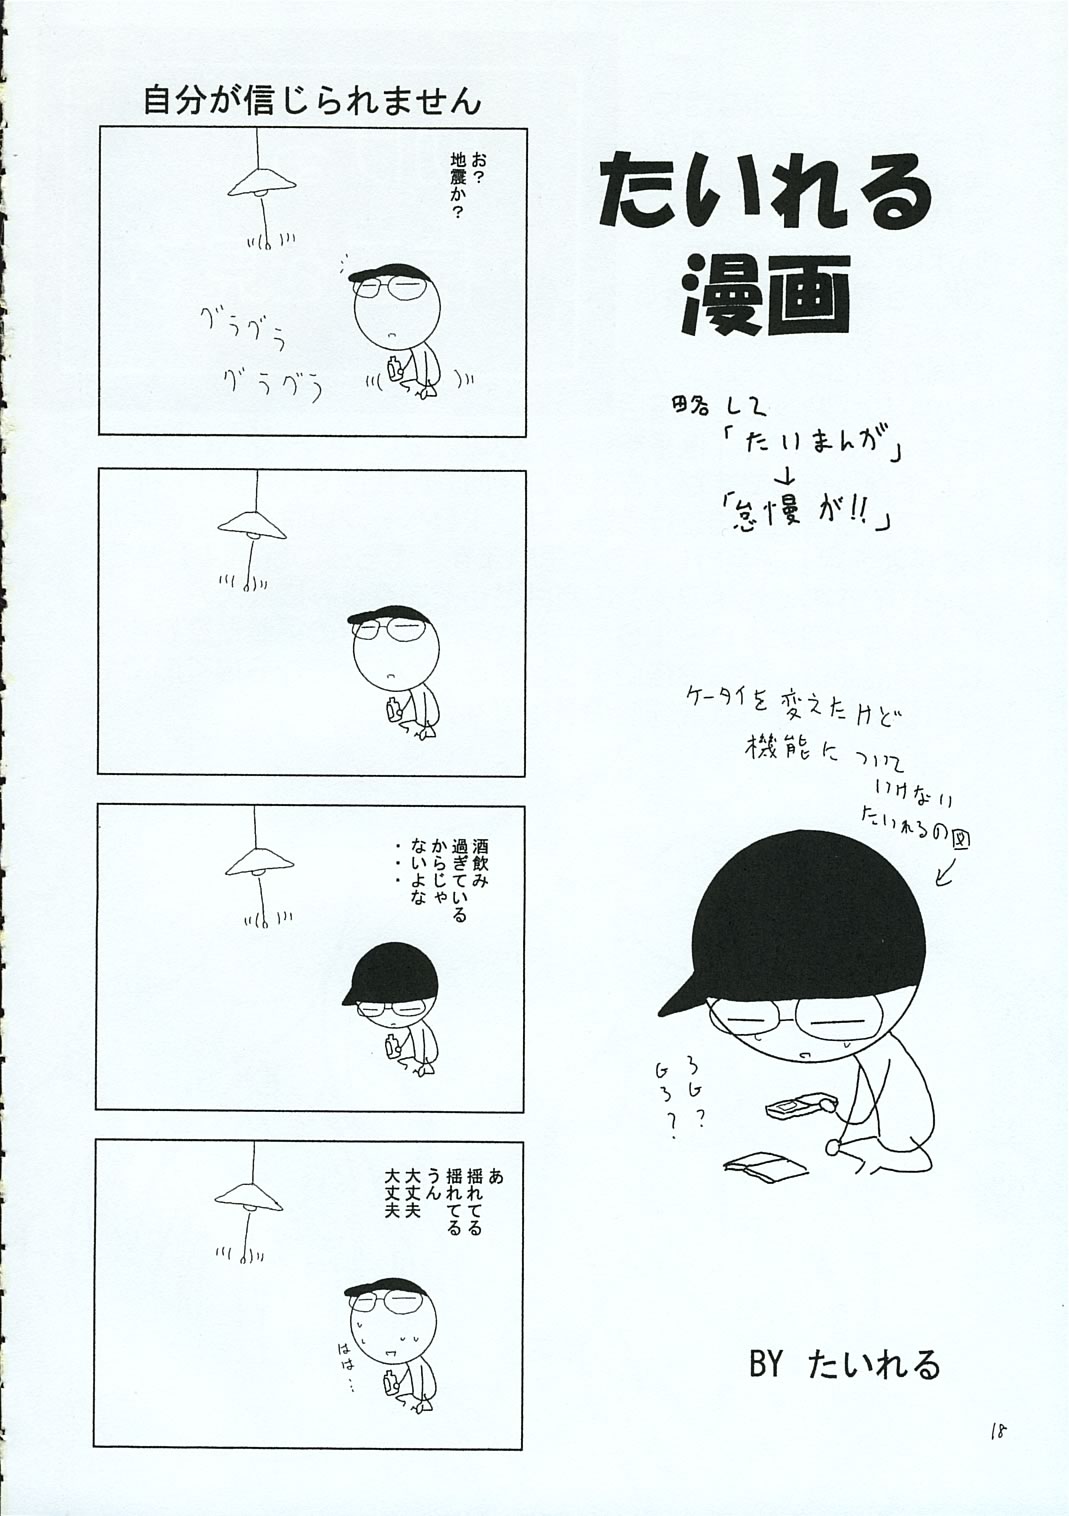 たいれる
漫画
略して
「たいまんが」
↓
「怠慢が!!」
ケータイを変えたけど
機能について
いけない
たいれるの図
3G?
G3?
BY たいれる
自分が信じられません
お?
地震か?
グラグラ
グラグラ
酒飲み
過ぎている
からじゃ
ないよな
・・・
あ
揺れてる
揺れてる
うん
大丈夫
大丈夫
はは…
18